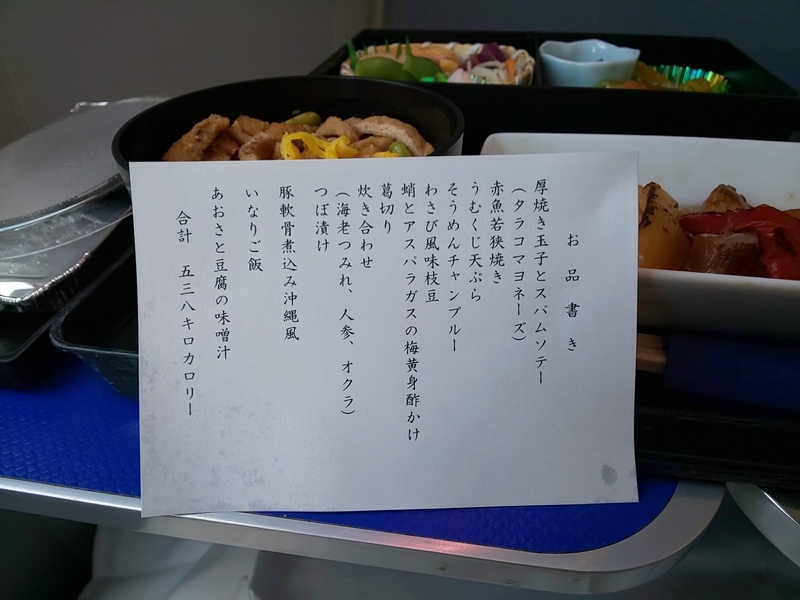 お品書き
厚焼き玉子とスパムソテー
（タラコマヨネーズ）
赤魚若狭焼き
うむくじ天ぷら
そうめんチャンプルー
わさび風味枝豆
蛸とアスパラガスの梅黄身酢かけ
葛切り
炊き合わせ
（海老つみれ、人参、オクラ）
つぼ漬け
豚軟骨煮込み沖縄風
いなりご飯
あおさと豆腐の味噌汁
合計　五三八キロカロリー